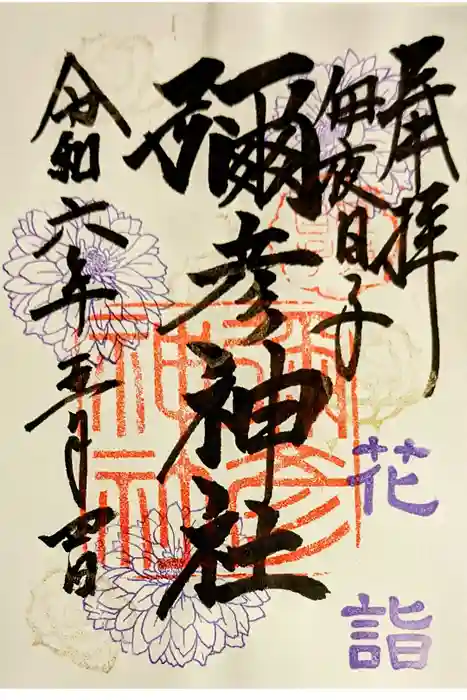 奉拝
伊夜日子
彌彦神社
令和六年三月四日
花詣